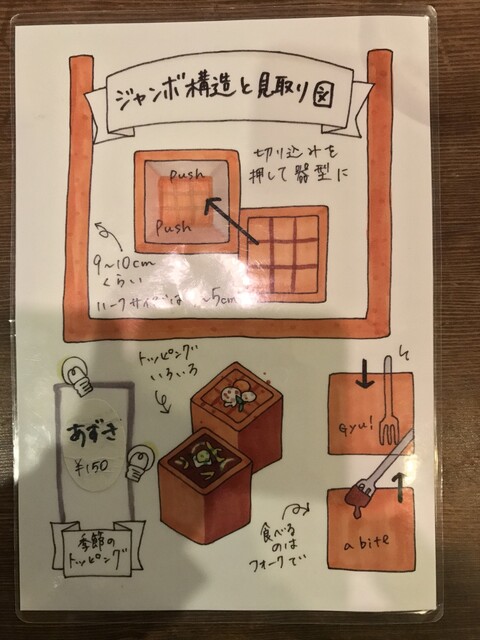 ジャンボ構造と見取り図
切り込みを
押して器型に
push
push
9〜10cm
くらい
ハーフサイズは 〜5cm
トッピング
いろいろ
あずき
¥150
季節の
トッピング
Gyu!
a bite
食べる
のは
フォークで